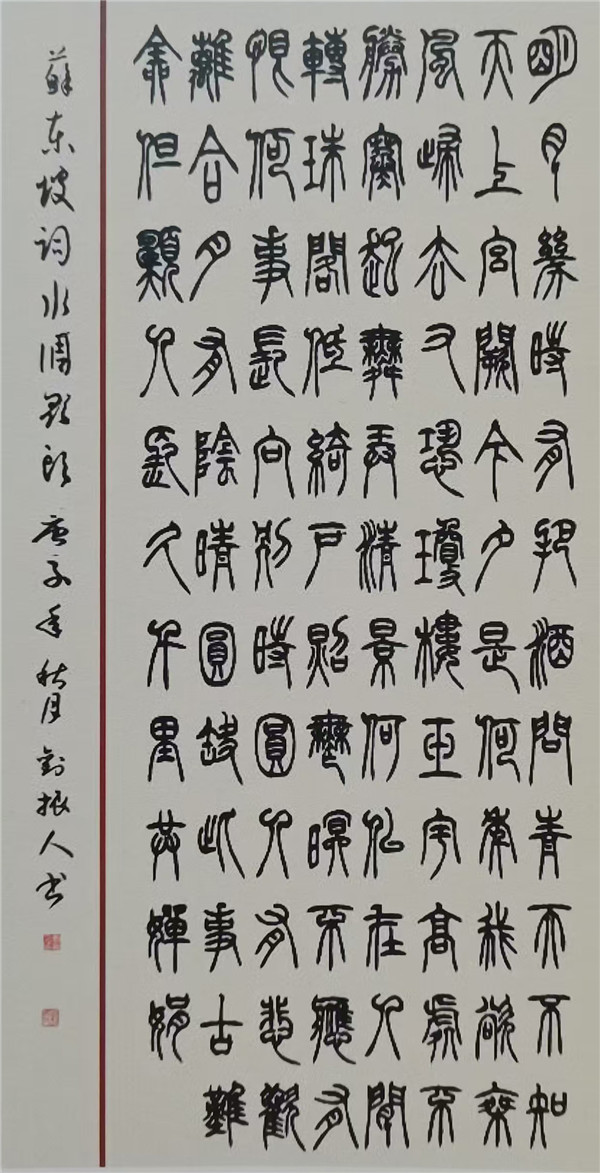 明月幾時有把酒問青天不知
天上宮闕今夕是何年我欲乘
風歸去又恐瓊樓玉宇高處不
勝寒起舞弄清景何似在人間
轉珠閣低綺戶照無眠不應有
恨何事長向別時圓人有悲歡
離合月有陰晴圓缺此事古難
全但願人長久千里共嬋娟
蘇東坡詞水調歌頭 庚子年秋月劉振人书